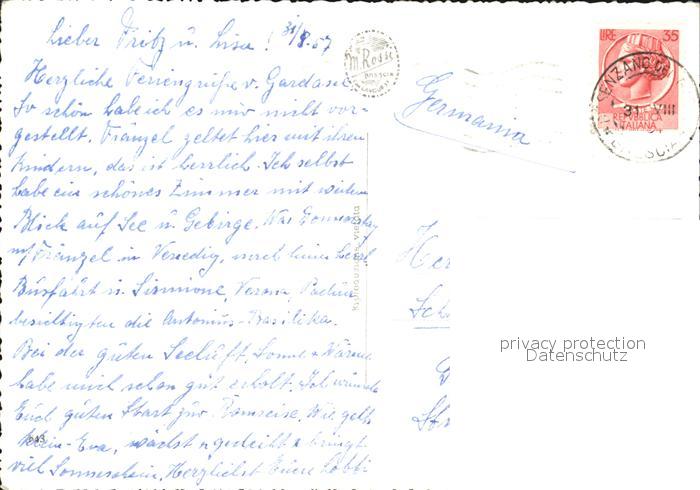 Lieber Fritz u. Lisa! 31/8.57
Herzliche Feriengrüße v. Gardasee
So schön habe ich es mir nicht vor-
gestellt. Franzel zeltet hier mit ihren
Kindern, das ist herrlich. Ich selbst
habe ein schönes Zimmer mit weitem
Blick auf See u. Gebirge. War Donnerstag
m/ Franzel in Venedig, nach einer
Busfahrt n. Sirmione, Verona, Padua
besichtigten die Antonius-Basilika.
Bei der guten Seeluft, Sonne + Wärme
habe mich schon gut erholt. Ich wünsche
Euch guten Start zur Romreise. Wie geht's
Klein-Eva, wächst u gedeiht u bringt
viel Sonnenschein, Herzlichst Eure
043
M. Rossi
BRESCIA
Riproduzione vietata
LIRE 35
REPVBBLICA
ITALIANA
31 VIII
Germania
Her
Sch
privacy protection
Datenschutz